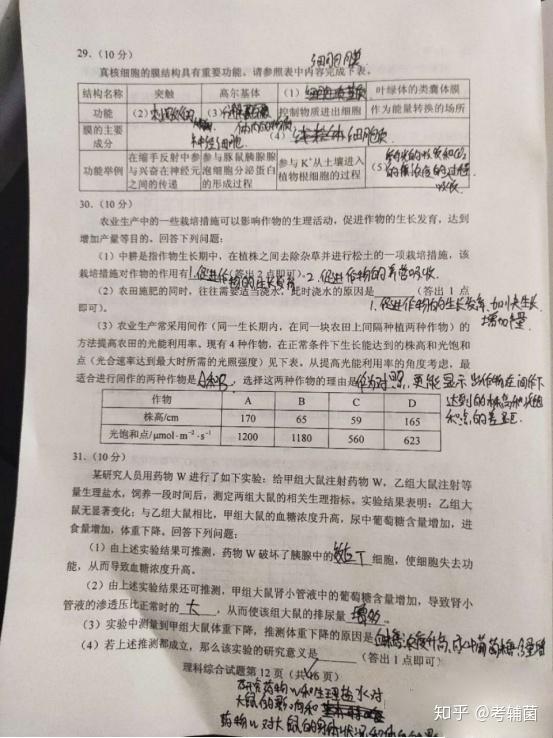 29.（10 分）
细胞膜
真核细胞的膜结构具有重要功能。请参照表中内容完成下表。
结构名称 突触 高尔基体 （1） 叶绿体的类囊体膜
功能 （2） （3） 控制物质进出细胞 作为能量转换的场所
膜的主要成分 （4）
功能举例 在缩手反射中参与兴奋在神经元之间的传递 参与豚鼠胰腺腺泡细胞分泌蛋白的形成过程 参与 K⁺从土壤进入植物根细胞的过程 （5）
30.（10 分）
农业生产中的一些栽培措施可以影响作物的生理活动，促进作物的生长发育，达到
增加产量等目的。回答下列问题：
（1）中耕是指作物生长期中，在植株之间去除杂草并进行松土的一项栽培措施，该
栽培措施对作物的作用有 1.促进作物的生长发育 （答出 2 点即可）。2.促进作物的营养吸收.
（2）农田施肥的同时，往往需要适当浇水，此时浇水的原因是 （答出 1 点
即可）。 1.促进作物的生长发育,加快生长,增加产量
（3）农业生产常采用间作（同一生长期内，在同一块农田上间隔种植两种作物）的
方法提高农田的光能利用率。现有 4 种作物，在正常条件下生长能达到的株高和光饱和
点（光合速率达到最大时所需的光照强度）见下表。从提高光能利用率的角度考虑，最
适合进行间作的两种作物是 A和B ，选择这两种作物的理由是 作为对照,更能显示出作物在间作下
达到的株高和光饱
和点的差异.
作物 A B C D
株高/cm 170 65 59 165
光饱和点/μmol·m⁻²·s⁻¹ 1200 1180 560 623
31.（10 分）
某研究人员用药物 W 进行了如下实验：给甲组大鼠注射药物 W，乙组大鼠注射等
量生理盐水，饲养一段时间后，测定两组大鼠的相关生理指标。实验结果表明：乙组大
鼠无显著变化；与乙组大鼠相比，甲组大鼠的血糖浓度升高，尿中葡萄糖含量增加，进
食量增加，体重下降。回答下列问题：
（1）由上述实验结果可推测，药物 W 破坏了胰腺中的 效应T 细胞，使细胞失去功
能，从而导致血糖浓度升高。
（2）由上述实验结果还可推测，甲组大鼠肾小管液中的葡萄糖含量增加，导致肾小
管液的渗透压比正常时的 大 ，从而使该组大鼠的排尿量 增多 。
（3）实验中测量到甲组大鼠体重下降，推测体重下降的原因是 血糖浓度升高,尿中葡萄糖含量增
（4）若上述推测都成立，那么该实验的研究意义是 （答出 1 点即可）。
理科综合试题第 12 页（共 16 页）
研究药物W和生理盐水对
大鼠的影响和
药物W对大鼠的身体状况
知乎 @考辅菌